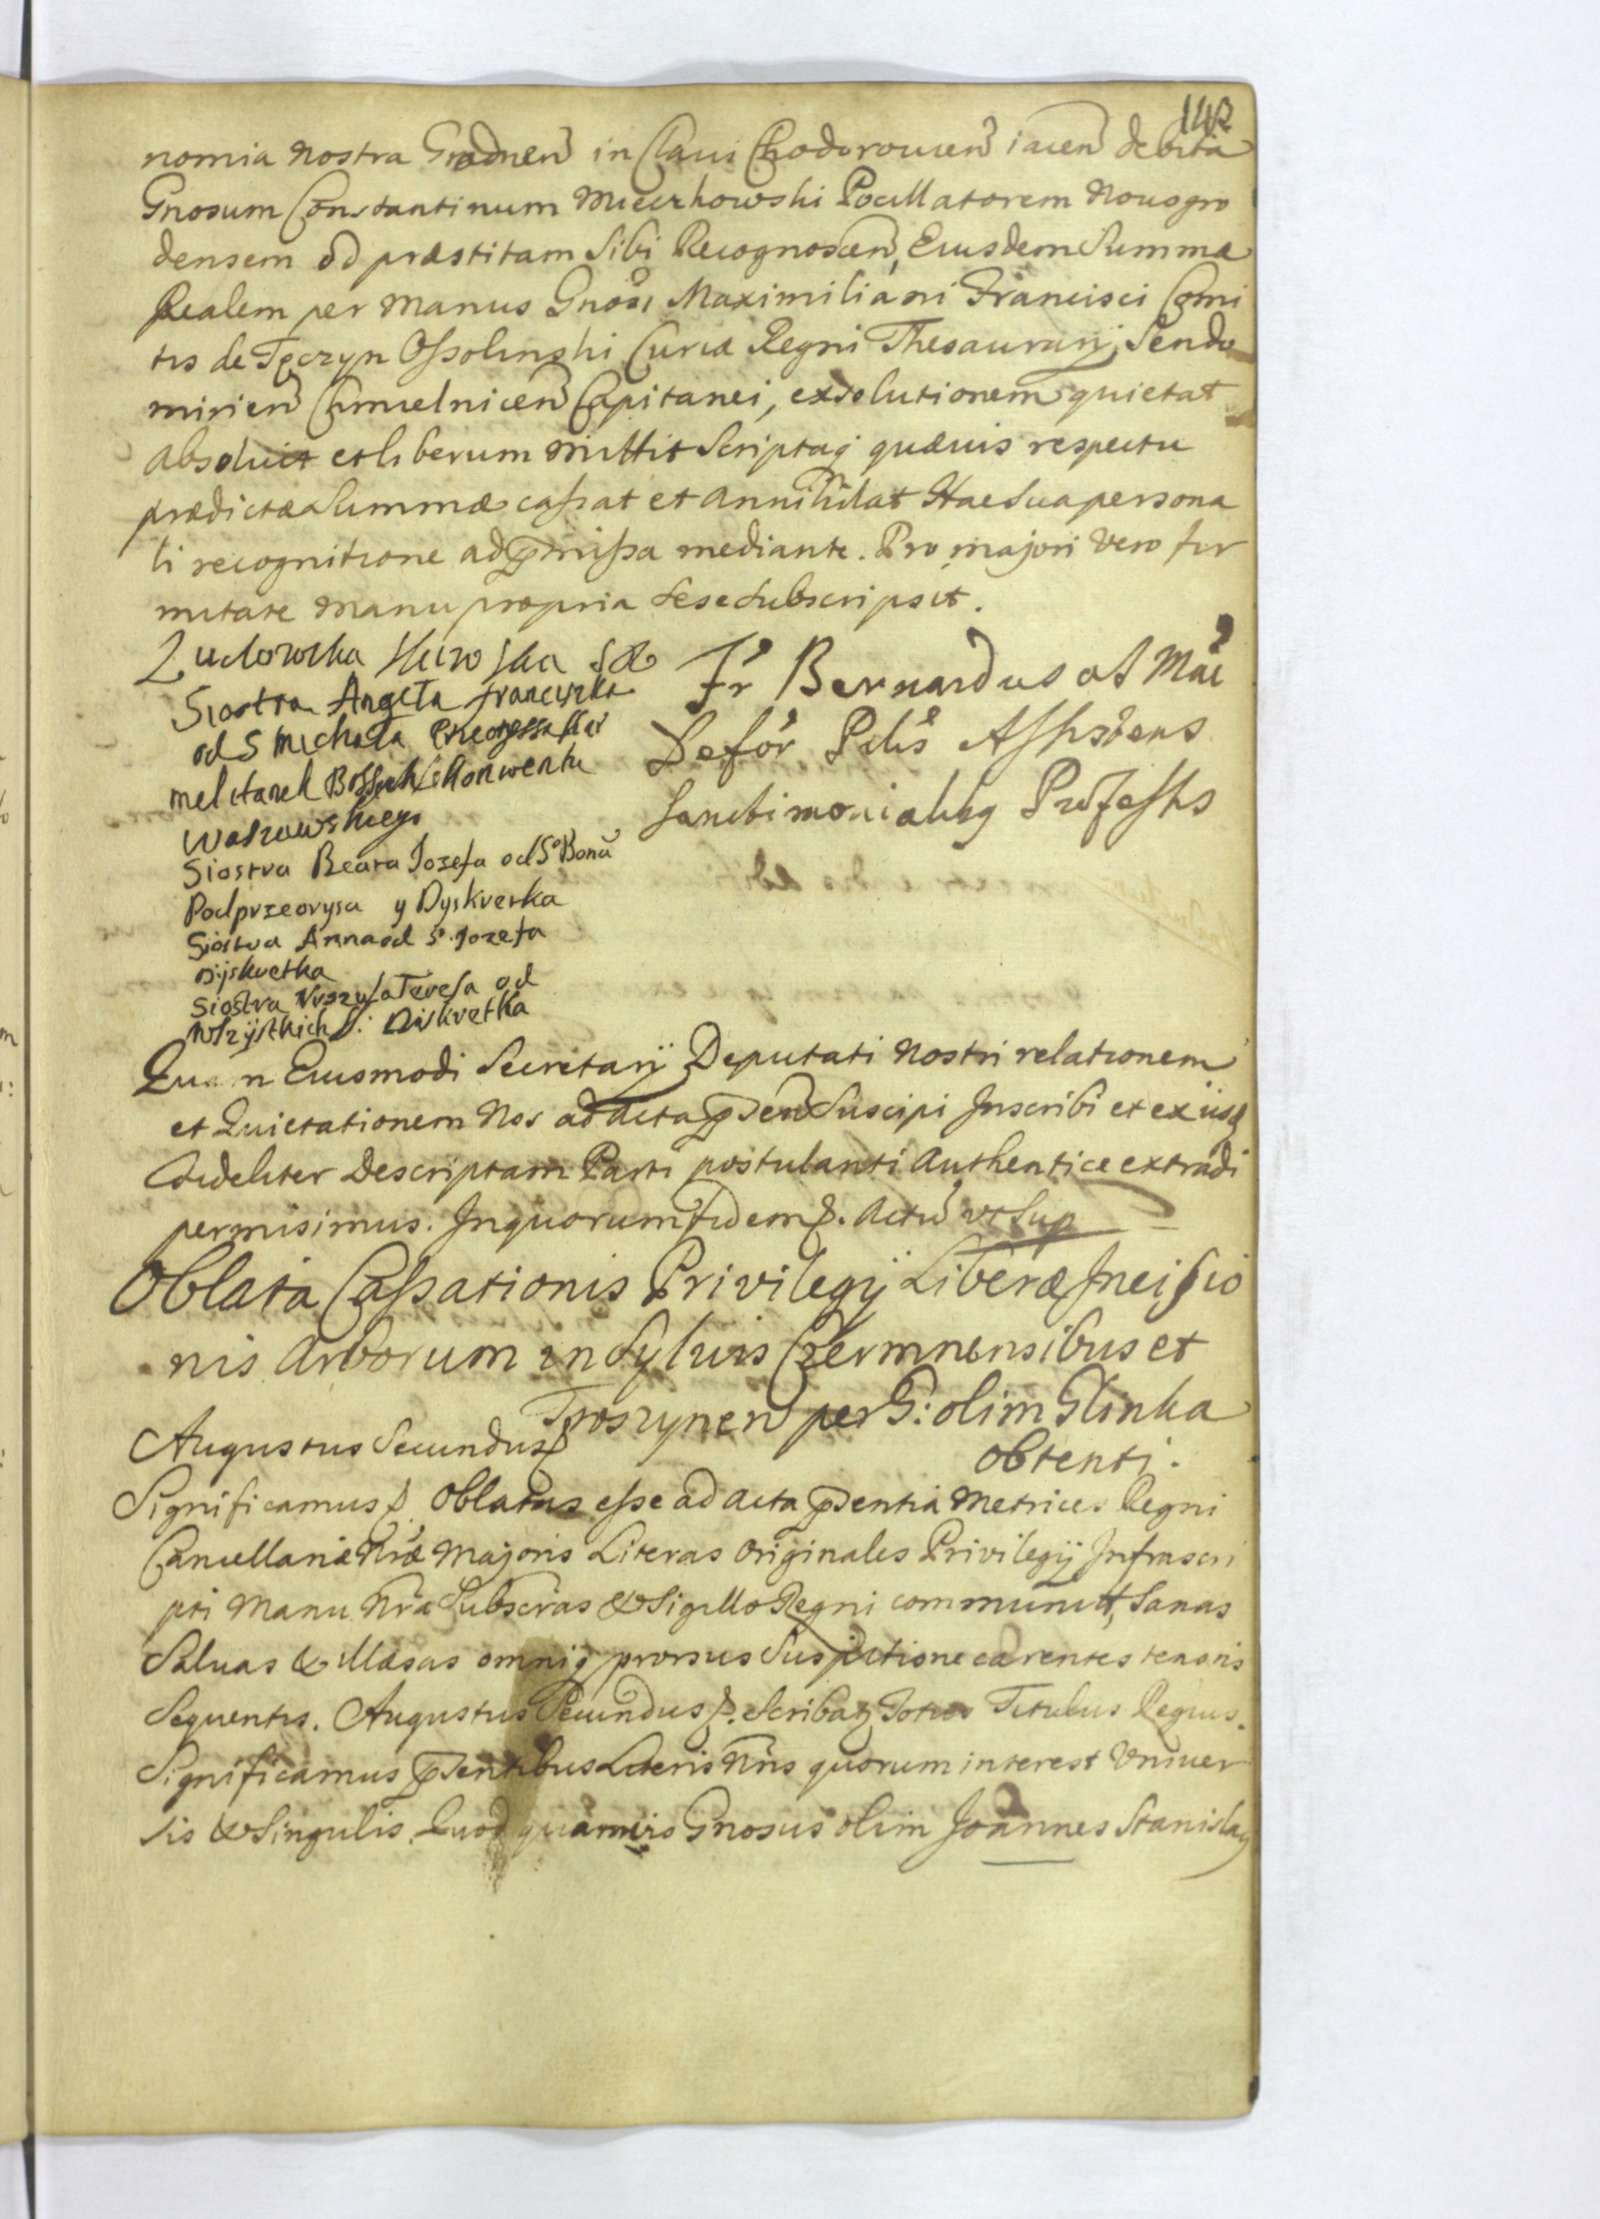 142
nomia nostra Grodnen in Clavi Chodorovicen iacen debita
Gnosum Constantinum Mieczkowski Pocillatorem Novogro
densem ob præstitam Sibi Recognoscen, Eiusdem Summæ
Realem per manus Gnosi Maximiliani Francisci Comi
tis de Tęczyn Ossolinski Curiæ Regni Thesaurarij, Sendo
mirien Chmielnicen Capitanei, exsolutionem quietat
absoluit et liberum mittit Scriptaq quævis respectu
prædictæ Summæ cassat et annihilat Hac Sua persona
li recognitione ad præmissa mediante. Pro majori vero fir
mitate manu propria sese subscripsit.
Siostra Angela Franciszka
od S Michała
Konwentu
Warszawskiego
Siostra Beata Iozefa od S° Bonā
Podprzeorysa y Dyskretka
Siostra Anna od S. Iozefa
Dyskretka
Siostra Teresa od
Wszystkich S: Diskretka
Fr Bernardus at Mãe
Defõr Assistens
Sanctimonialibq Professis
Quam Eiusmodi Secretarij Deputati Nostri relationem
et Quietationem Nos ad acta psen Suscipi Inscribi et ex iisq
fideliter Descriptam Parti postulanti Authentice extradi
permisimus. In quorum fidem p. Actū ut Sup
Oblata Cassationis Privilegij Liberæ Incisio
nis Arborum in Sylvis Czermnensibus et
Troszynen per G: olim Glinka
obtenti.
Augustus Secundus p
Significamus p. Oblatas esse ad acta psentia Metrices Regni
Cancellariæ Nræ Majoris Literas Originales Privilegij Infrascri
pti Manu Nra Subscras & Sigillo Regni communit, Sanas
Salvas & Illæsas omniq prorsus Suspicione carentes tenoris
Sequentis. Augustus Secundus p. Scribatq Totus Titulus Regius.
Significamus psentibus Literis Nris quorum interest Univer
sis & Singulis. Quod quamvis Gnosus olim Joannes Stanislaq